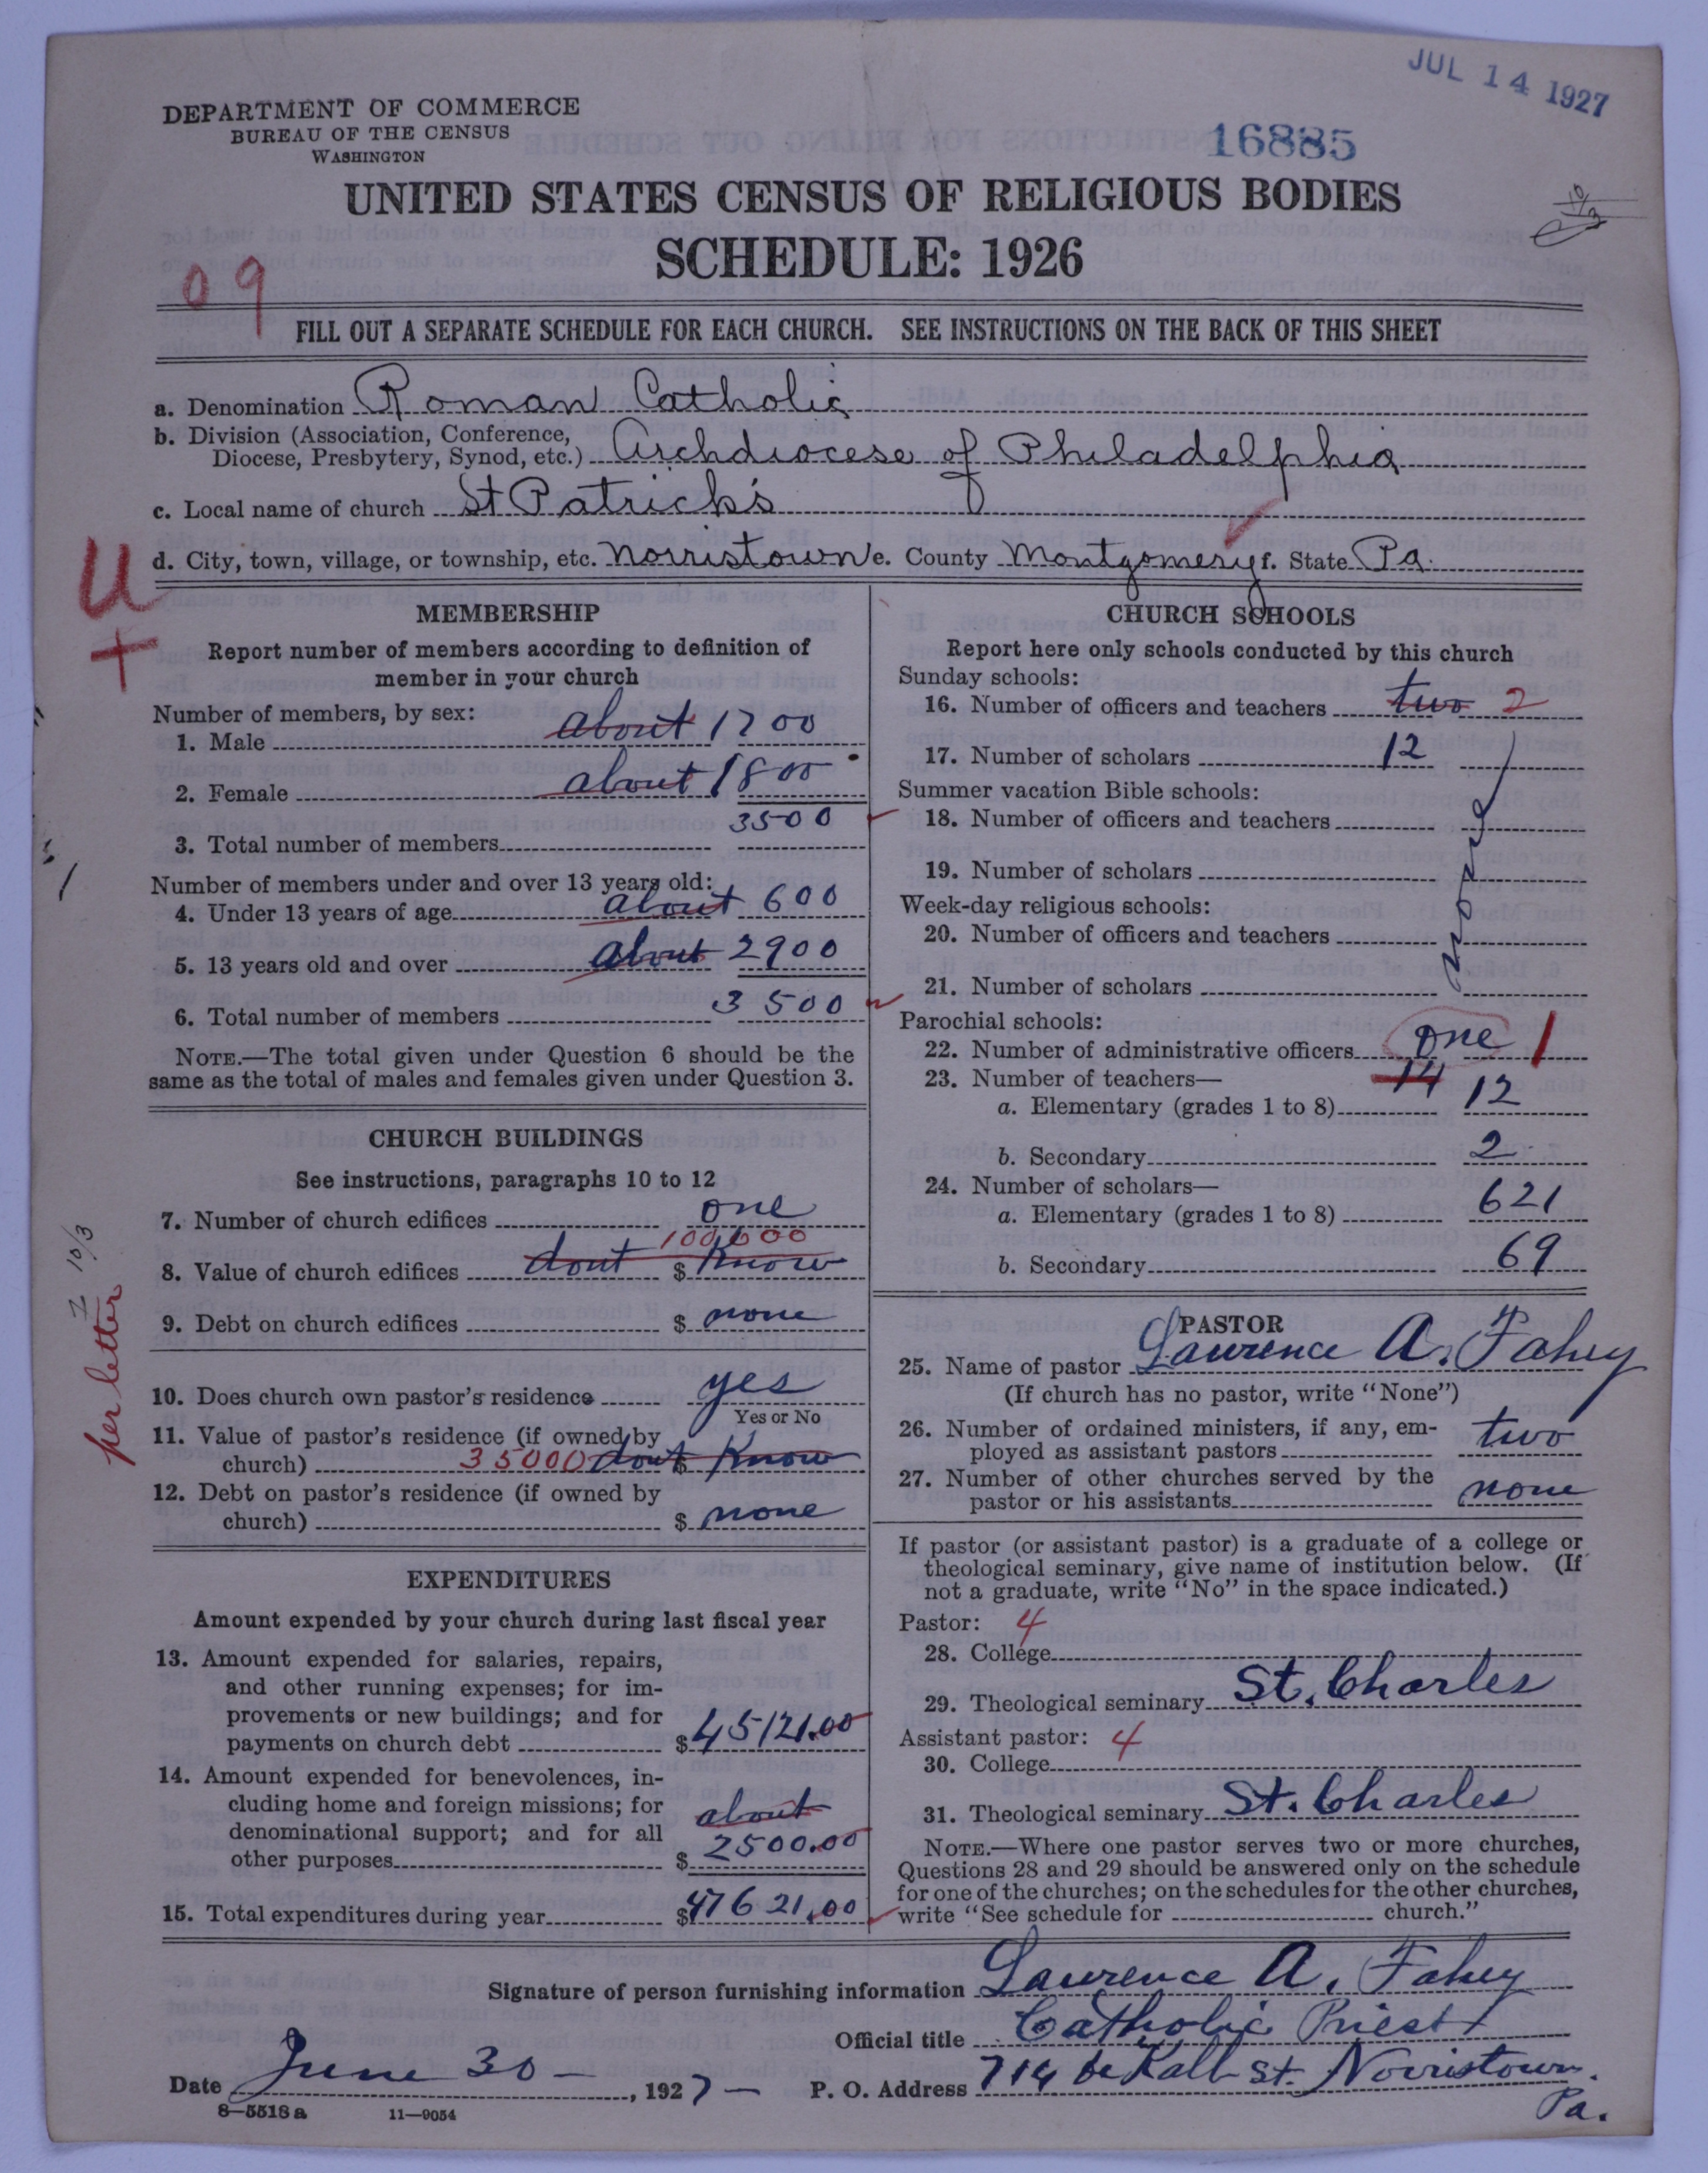 JUL 14 1927
DEPARTMENT OF COMMERCE
BUREAU OF THE CENSUS
WASHINGTON
16885
UNITED STATES CENSUS OF RELIGIOUS BODIES
SCHEDULE: 1926
10/3
09
FILL OUT A SEPARATE SCHEDULE FOR EACH CHURCH. SEE INSTRUCTIONS ON THE BACK OF THIS SHEET
a. Denomination Roman Catholic
b. Division (Association, Conference,
Diocese, Presbytery, Synod, etc.) Archdiocese of Philadelphia
c. Local name of church St Patrick's
d. City, town, village, or township, etc. Norristown e. County Montgomery f. State Pa.
U
+
MEMBERSHIP
Report number of members according to definition of
member in your church
Number of members, by sex:
1. Male about 1700
2. Female about 1800
3500
3. Total number of members
Number of members under and over 13 years old:
4. Under 13 years of age about 600
5. 13 years old and over about 2900
6. Total number of members 3500
NOTE.—The total given under Question 6 should be the
same as the total of males and females given under Question 3.
CHURCH BUILDINGS
See instructions, paragraphs 10 to 12
7. Number of church edifices one
100000
8. Value of church edifices dont $ Know
9. Debt on church edifices $ none
10. Does church own pastor's residence yes
Yes or No
11. Value of pastor's residence (if owned by
church) 35000 dont $ Know
12. Debt on pastor's residence (if owned by
church) $ none
per letter 10/3
EXPENDITURES
Amount expended by your church during last fiscal year
13. Amount expended for salaries, repairs,
and other running expenses; for im-
provements or new buildings; and for
payments on church debt $ 45121.00
14. Amount expended for benevolences, in-
cluding home and foreign missions; for
denominational support; and for all about
other purposes $ 2500.00
15. Total expenditures during year $ 47621.00
CHURCH SCHOOLS
Report here only schools conducted by this church
Sunday schools:
16. Number of officers and teachers two 2
17. Number of scholars 12
Summer vacation Bible schools:
18. Number of officers and teachers
19. Number of scholars
none
Week-day religious schools:
20. Number of officers and teachers
21. Number of scholars
Parochial schools:
22. Number of administrative officers one 1
23. Number of teachers— 14
a. Elementary (grades 1 to 8) 12
b. Secondary 2
24. Number of scholars—
a. Elementary (grades 1 to 8) 621
b. Secondary 69
PASTOR
25. Name of pastor Lawrence A. Fahey
(If church has no pastor, write "None")
26. Number of ordained ministers, if any, em-
ployed as assistant pastors two
27. Number of other churches served by the
pastor or his assistants none
If pastor (or assistant pastor) is a graduate of a college or
theological seminary, give name of institution below. (If
not a graduate, write "No" in the space indicated.)
Pastor: 4
28. College
29. Theological seminary St. Charles
Assistant pastor: 4
30. College
31. Theological seminary St. Charles
NOTE.—Where one pastor serves two or more churches,
Questions 28 and 29 should be answered only on the schedule
for one of the churches; on the schedules for the other churches,
write "See schedule for church."
Signature of person furnishing information Lawrence A. Fahey
Official title Catholic Priest
Date June 30 -, 1927 - P. O. Address 714 de Kalb St. Norristown.
Pa.
8-5518 a 11-9054